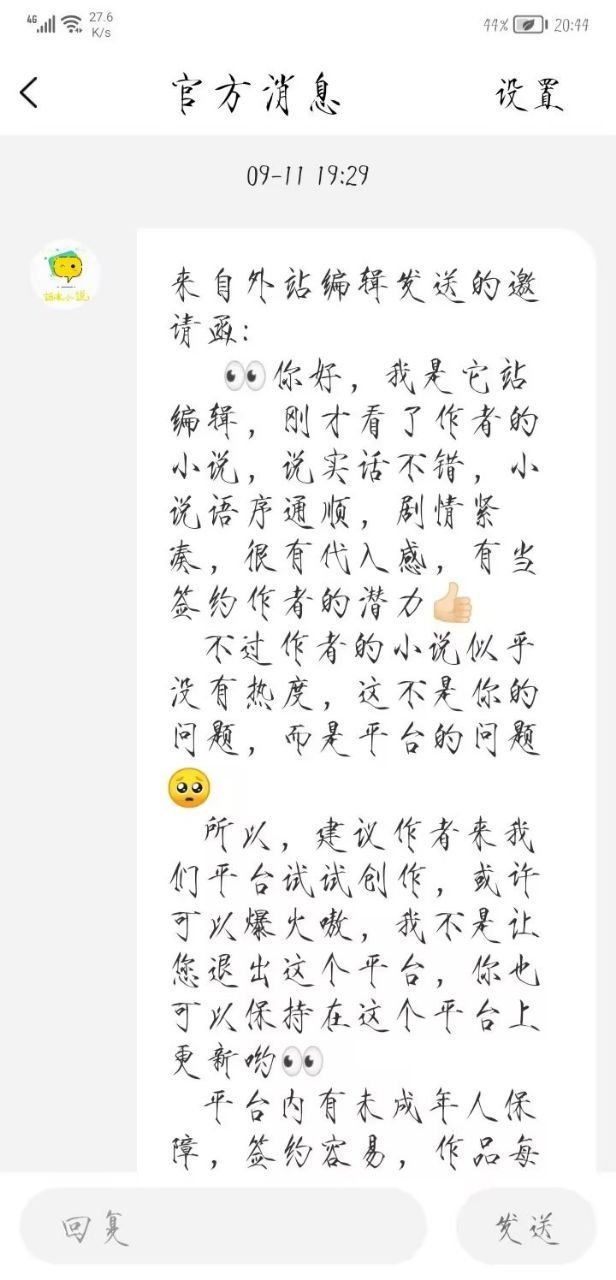 4G 27.6 K/s 44% 20:44
官方消息 设置
09-11 19:29
话本小说
来自外站编辑发送的邀
请函:
👀你好，我是它站
编辑，刚才看了作者的
小说，说实话不错，小
说语序通顺，剧情紧
凑，很有代入感，有当
签约作者的潜力👍🏻
不过作者的小说似乎
没有热度，这不是你的
问题，而是平台的问题
🥺
所以，建议作者来我
们平台试试创作，或许
可以爆火嗷，我不是让
您退出这个平台，你也
可以保持在这个平台上
更新哟👀
平台内有未成年人保
障，签约容易，作品每
回复 发送